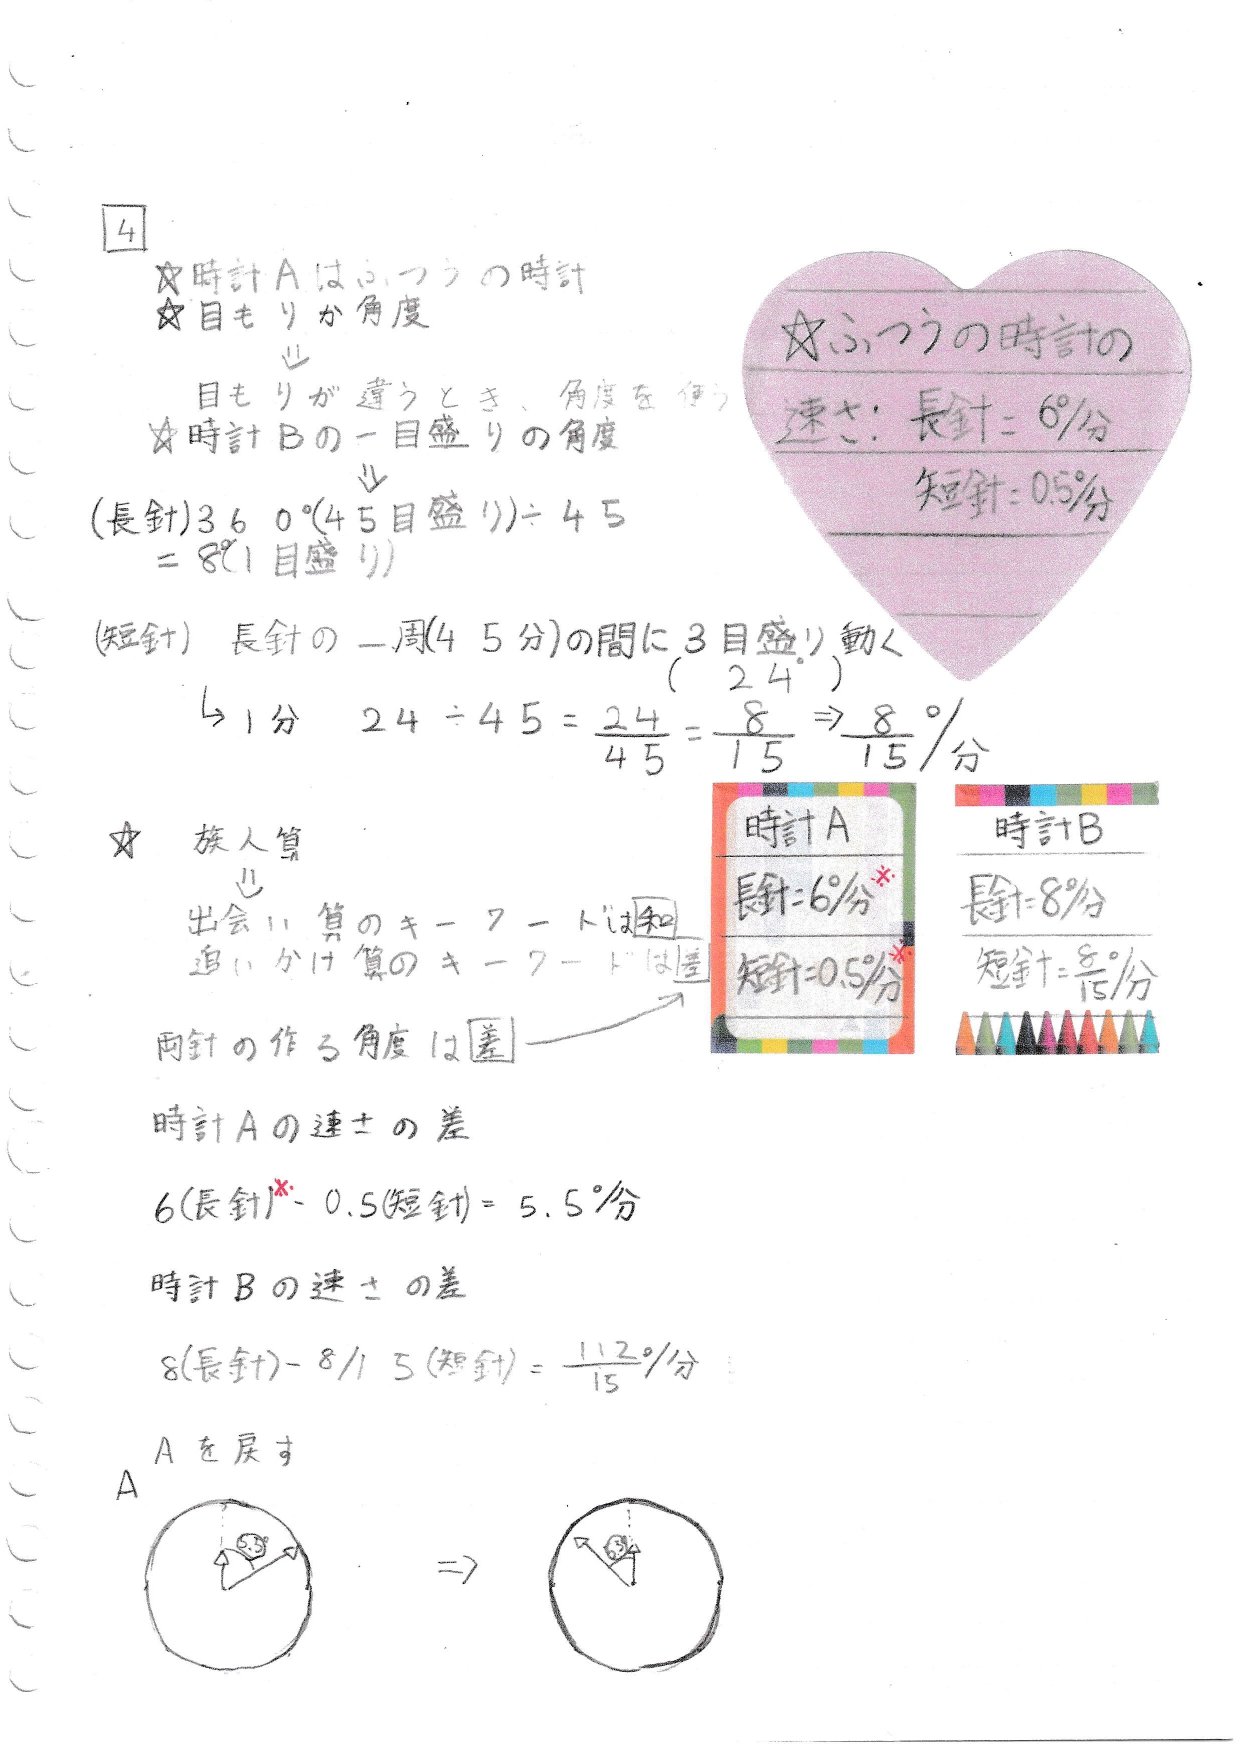 4
☆時計Aはふつうの時計
☆目もりか角度
⇓
目もりが違うとき、角度を使う
☆時計Bの一目盛りの角度
⇓
(長針)360°(45目盛り)÷45
=8°(1目盛り)
(短針) 長針の一周(45分)の間に3目盛り動く
(24°)
↳1分 24÷45=24/45=8/15⇒8/15°/分
☆ふつうの時計の
速さ:長針=6°/分
短針=0.5°/分
☆ 族人算
⇓
出会い算のキーワードは和
追いかけ算のキーワードは差
両針の作る角度は差
時計A
長針=6°/分※
短針=0.5°/分※
時計B
長針=8°/分
短針=8/15°/分
時計Aの速さの差
6(長針)※-0.5(短針)=5.5°/分
時計Bの速さの差
8(長針)-8/15(短針)=112/15°/分
Aを戻す
A
⇒